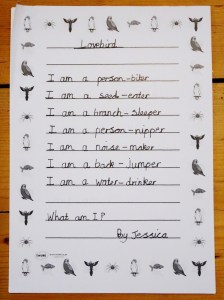 Lovebird
I am a person-biter
I am a seed-eater
I am a branch-sleeper
I am a person-nipper
I am a noise-maker
I am a back-jumper
I am a water-drinker
What am I?
By Jessica